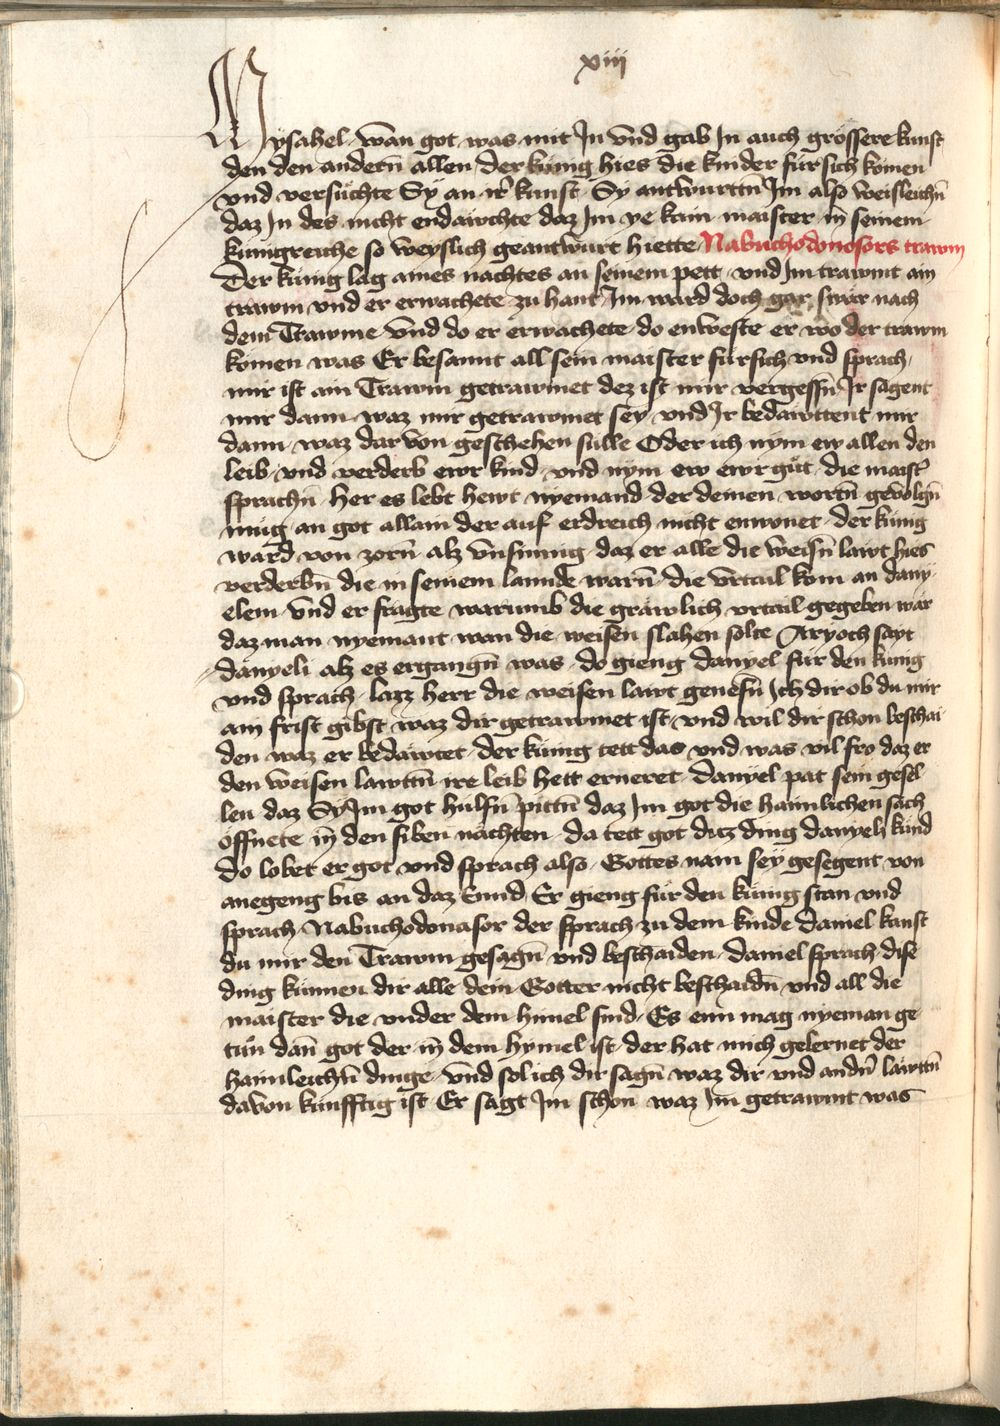 xiii
Mysahel wan got was mit In vnd gab In auch grössere kunst
den den andern̄ allen der kunig hies die kinder für sich komen
vnd versuchte Sy an ir kunst Sy antwurttn̄ Im also weisleichn̄
daz In des nicht endawchte daz Im ye kain maister in̄ seinem
kunigreiche so weyslich geantwurt hiette Nabuchodonosors trawm
Der kunig lag aines nachtes an seinem pett vnd Im trawmt ain
trawm vnd er erwachete zu hant Im ward doch gar swär nach
dem Trawme vnd do er erwachete do enweste er wo der trawm
komen was Er besannt all sein maister für sich vnd sprach
mir ist ain Trawm getrawmet dez ist mir vergessn̄ Ir sagent
mir dann waz mir getrawmet sey vnd Ir bedawttent mir
dann waz dar von geschehen sülle Oder ich nym ew allen den
leib vnd verderb ewr kind vnd nym ew ewr güt die maist
sprachn̄ her es lebt hewt nyemand der deinen wortn̄ gevolgn̄
müg an got allain der auf erdreich nicht enwonet der kunig
ward von zorn̄ alz vnsinnig daz er alle die weisn̄ lawt hies
verderbn̄ die in seinem lannde warn̄ die vrtail kom an dany
elem vnd er fragte warumb die gräwlich vrtail gegeben wär
daz man nyemant wan die weisen slahen solte Aryoch sayt
danyeli alz es ergangn̄ was do gieng danyel für den kunig
vnd sprach lazz herr die weisen lawt genesn̄ Ich dir ob du mir
ain frist gibst waz dir getrawmet ist vnd wil dir schon beschai
den waz er bedawtet der kunig tett das vnd was vil fro daz er
den weisen lawttn̄ ire leib hett erneret danyel pat sein gesel
len daz Sy Im got hulfn̄ pittn̄ daz Im got die haimlichen sach
öffnete in̄ den siben nächten da tett got daz ding danyeli kund
do lobet er got vnd sprach also Gottes nam sey gesegent von
anegeng bis an daz Ennd Er gieng für den kunig stan vnd
sprach Nabuchodonasor der sprach zu dem kinde daniel kanst
du mir den Trawm gesagn̄ vnd beschaiden daniel sprach dise
ding künnen dir alle dein Gotter nicht beschaidn̄ vnd all die
maister die vnder dem himel sind Es enn mag nyeman ge
tün dan̄ got der in̄ dem hymel ist der hat mich gelernet der
haimleichn̄ dinge vnd sol ich dir sagn̄ waz dir vnd andn̄ lawttn̄
davon künfftig ist Er sagt Im schon waz Im getrawmt was